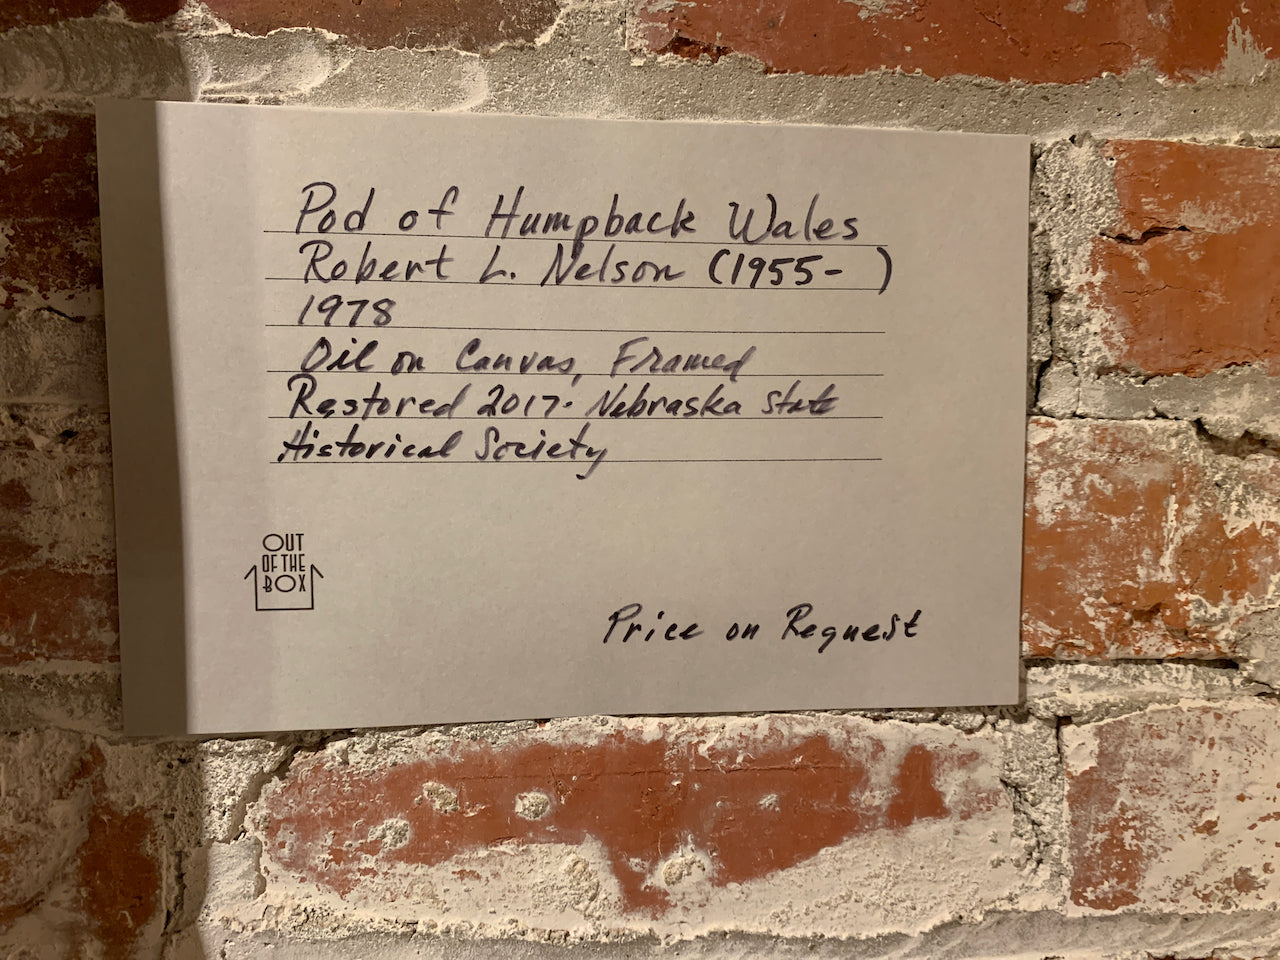 Pod of Humpback Wales
Robert L. Nelson (1955- )
1978
Oil on Canvas, Framed
Restored 2017- Nebraska State
Historical Society
OUT
OF THE
BOX
Price on Request